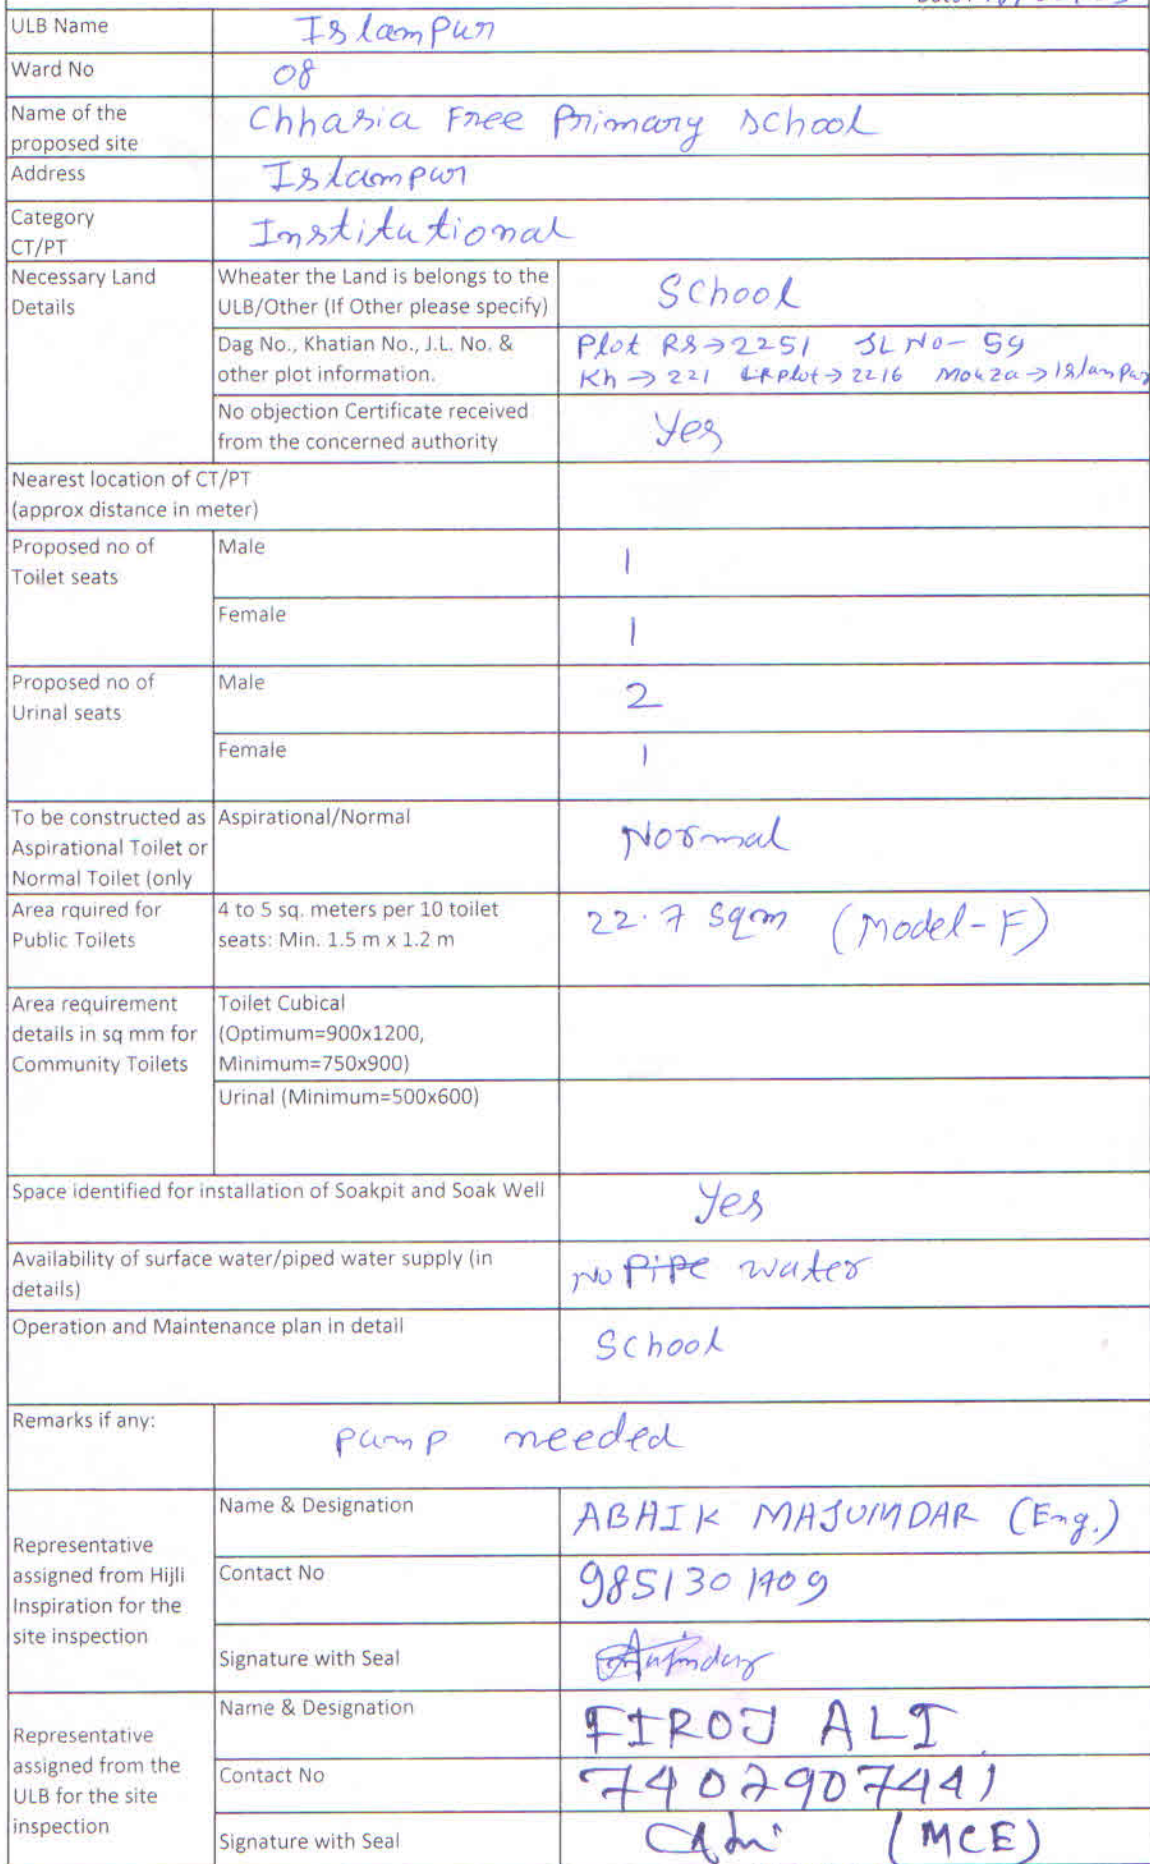 ULB Name Islampur
Ward No 08
Name of the
proposed site Chhasia Free Primary School
Address Islampur
Category
CT/PT Institutional
Necessary Land
Details
Wheater the Land is belongs to the
ULB/Other (If Other please specify)
School
Dag No., Khatian No., J.L. No. &
other plot information.
Plot RS→2251 JL No- 59
Kh → 221 LR plot → 2216 Mouza → Islampur
No objection Certificate received
from the concerned authority
Yes
Nearest location of CT/PT
(approx distance in meter)
Proposed no of
Toilet seats
Male 1
Female 1
Proposed no of
Urinal seats
Male 2
Female 1
To be constructed as
Aspirational Toilet or
Normal Toilet (only
Aspirational/Normal
Normal
Area rquired for
Public Toilets
4 to 5 sq. meters per 10 toilet
seats: Min. 1.5 m x 1.2 m
22.7 Sqm (Model-F)
Area requirement
details in sq mm for
Community Toilets
Toilet Cubical
(Optimum=900x1200,
Minimum=750x900)
Urinal (Minimum=500x600)
Space identified for installation of Soakpit and Soak Well Yes
Availability of surface water/piped water supply (in
details)
No Pipe water
Operation and Maintenance plan in detail
School
Remarks if any: Pump needed
Representative
assigned from Hijli
Inspiration for the
site inspection
Name & Designation ABHIK MAJUMDAR (Eng.)
Contact No 9851301709
Signature with Seal
Representative
assigned from the
ULB for the site
inspection
Name & Designation FIROJ ALI
Contact No 7407907441
Signature with Seal (MCE)